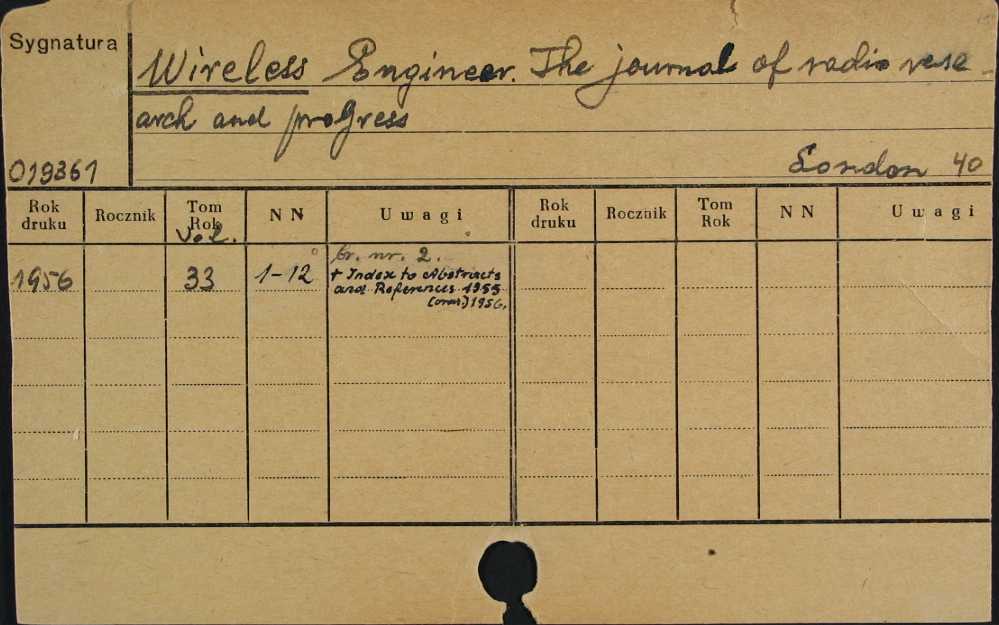 Sygnatura
Wireless Engineer. The journal of radio rese-
arch and progress
019361
London 40
Rok druku Rocznik Tom Rok NN Uwagi Rok druku Rocznik Tom Rok NN Uwagi
Vol.
br. nr. 2.
1956 33 1-12 + Index to Abstracts
and References 1955
1956.